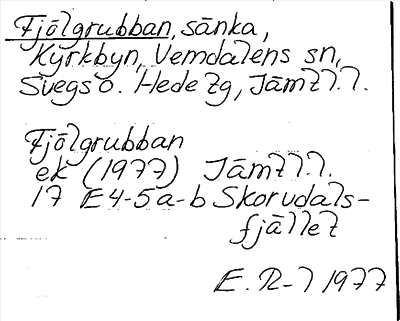 Fjölgrubban, sänka,
Kyrkbyn, Vemdalens sn,
Svegs o. Hede tg, Jämtl. l.
Fjölgrubban
ek (1977) Jämtl l.
17 E4-5a-b Skorvdals-
fjället
E. R-l 1977